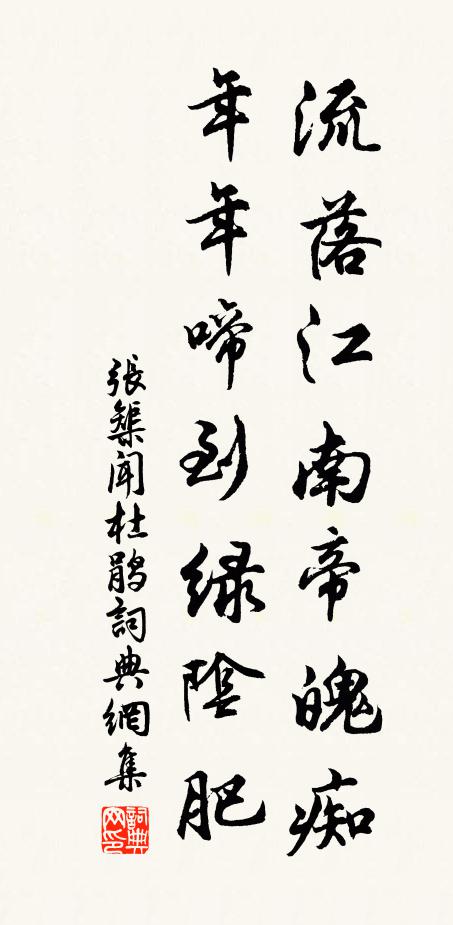 流落江南帝魄痴
年年啼到緑陰肥
張榘聞杜鵑詞典網集
詞典网印